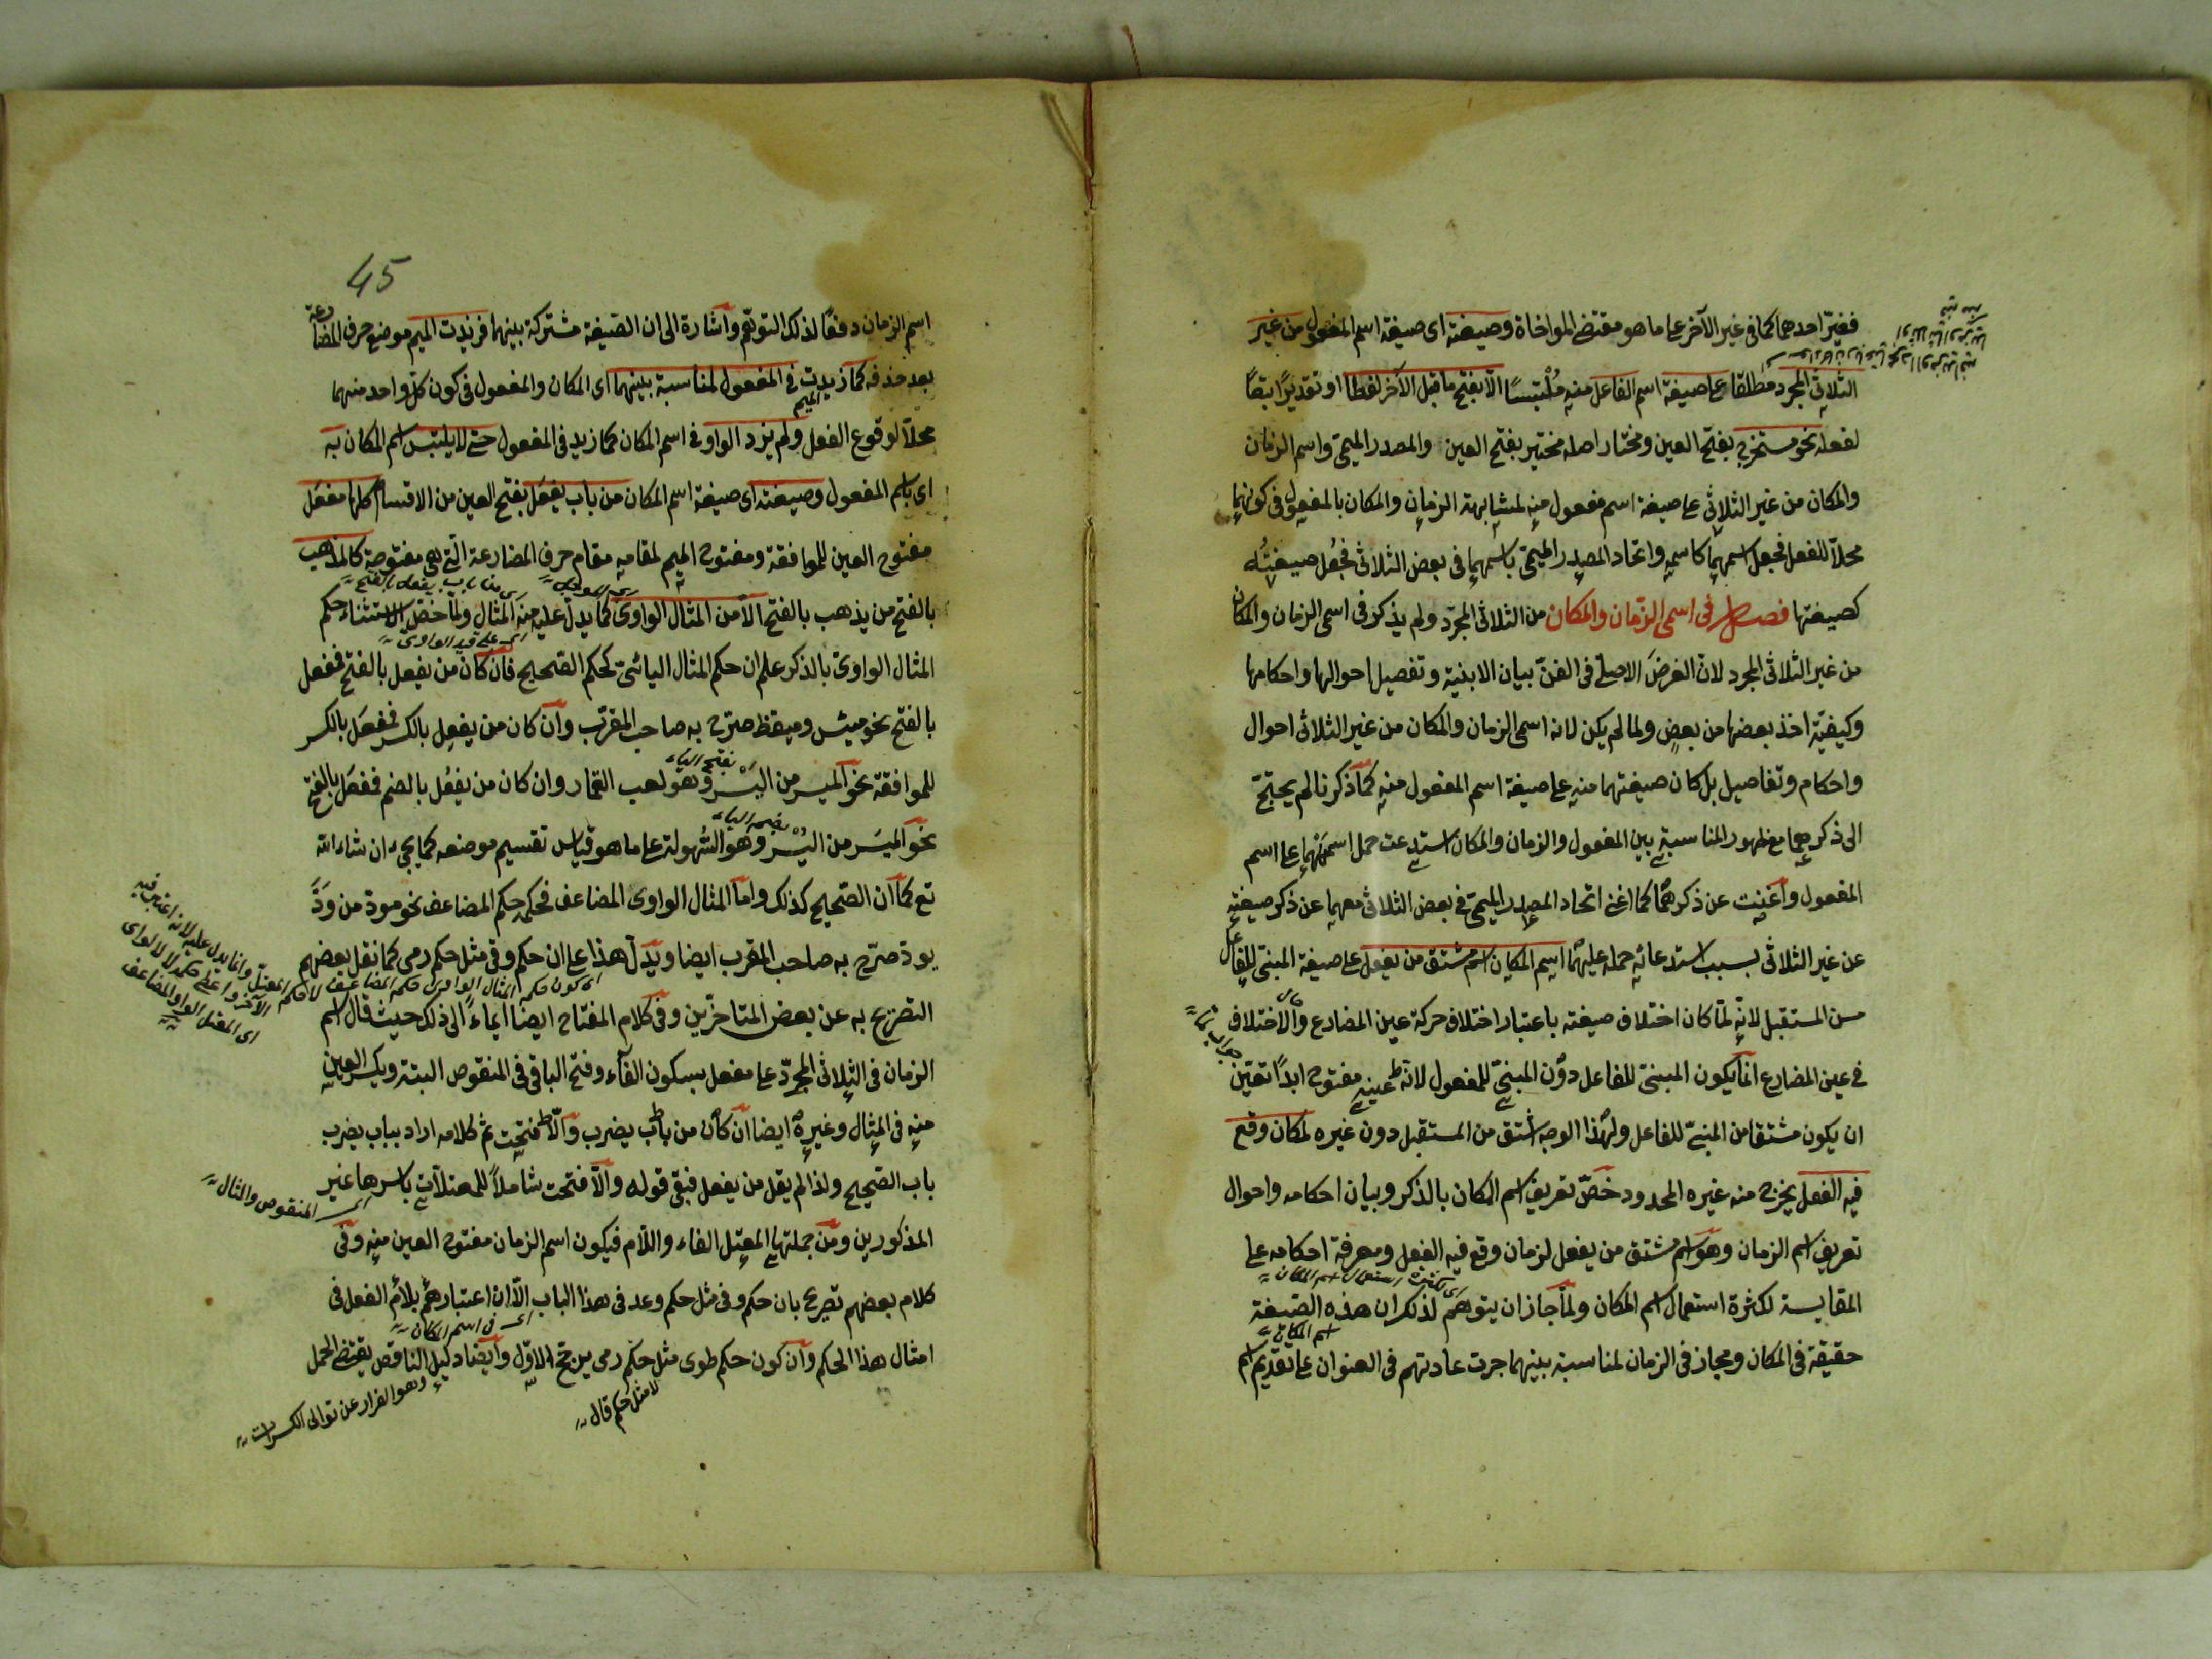 فغيّر احدهما كما فى غير الآخر على ما هو مقتضى المواخاة وصيغته اى صيغة اسم المفعول من غير
الثلاثى المجرد مطلقا على صيغة اسم الفاعل منه مُلْتبسًا الّا بفتح ما قبل الآخر لفظا او تقديرًا تبعًا
لفعله نحو مستخرج بفتح العين ومختار اصله مختير بفتح العين والمصدر الميمى واسم الزمان
والمكان من غير الثلاثى على صيغة اسم مفعول منه لمشابهة الزمان والمكان بالمفعول فى كونهما
محلّا للفعل فجعل اسمهما كاسمه واتحاد المصدر الميمى باسمهما فى بعض الثلاثى فجُعل صيغتُه
كصيغتها فصل فى اسمى الزّمان والمكان من الثلاثى المجرّد ولم يذكر فى اسمى الزمان والمكان
من غير الثلاثى المجرد لان الغرض الاصلىّ فى الفنّ بيان الابنية وتفصيل احوالها واحكامها
وكيفيّة اخذ بعضها من بعضٍ ولما لم يكن لانه اسمى الزمان والمكان من غير الثلاثى احوال
واحكام وتفاصيل بل كان صيغتهما منه على صيغة اسم المفعول منه كما ذكرنا لم يحتجّ
الى ذكرهما مع ظهور المناسبة بين المفعول والزمان والمكان استدعت حمل اسميهما على اسم
المفعول واغنيت عن ذكرهما كما اغنى اتحاد المصدر الميمى فى بعض الثلاثى معهما عن ذكر صيغته
عن غير الثلاثى بسبب استدعائه حمله عليهما اسم المكان اسم مشتق من يفعل على صيغة المبنى للفاعل
من المستقبل لانه لمّا كان اختلاف صيغته باعتبار اختلاف حركة عين المضارع والاختلاف
فى عين المضارع انّما يكون المبنىّ للفاعل دون المبنىّ للمفعول لانّ عينه مفتوح ابدًا تعيّن
ان يكون مشتقا من المبنىّ للفاعل ولهذا الوجه اشتق من المستقبل دون غيره لمكان وقع
فيه الفعل يخرج منه غيره المحدود خصّ تعريف اسم المكان بالذكر وبيان احكامه واحوال
تعريف اسم الزمان وهو اسم مشتق من يفعل لزمان وقع فيه الفعل ومعرفة احكامه على
المقايسة لكثرة استعمال اسم المكان ولمّا جاز ان يتوهم لذلك ان هذه الصّيغة
اى لكثرة استعمال اسم المكان
حقيقة فى المكان ومجاز فى الزمان لمناسبة بينهما جرت عادتهم فى العنوان على تقديم اسم
اسم المكان
45
اسم الزمان دفعًا لذلك التوهّم واشارة الى ان الصّيغة مشتركة بينهما فزيدت الميم موضع حرف المضارعة
بعد حذفه كما زيدت فى المفعول لمناسبة بينهما اى المكان والمفعول فى كون كل واحد منهما
الميم
محلّا لوقوع الفعل ولم يزد الواو فى اسم المكان كما زيد فى المفعول حتى لا يلتبس اسم المكان به
اى باسم المفعول وصيغته اى صيغة اسم المكان من باب يفعَل بفتح العين من الاقسام كلها مفعَل
مفتوح العين للموافقة ومفتوح الميم لمقامه مقام حرف المضارعة التى هى مفتوحة كالمذهب
بالفتح من يذهب بالفتح الّا من المثال الواوىّ كما يدلّ عليه منه المثال ولمّا خصّ الاستثناء حكم
من باب يفعل بالفتح
المثال الواوىّ بالذكر علم ان حكم المثال اليائىّ كحكم الصّحيح فان كان من يفعل بالفتح فمفعل
اى على قيد الواوى
بالفتح نحو ميئس وميقظ صرّح به صاحب المقرّب وان كان من يفعِل بالكسر فمفعِل بالكسر
للموافقة نحو الميسر من اليَسْر وهو لعب القمار وان كان من يفعُل بالضم فمفعَل بالفتح
بفتح الياء
نحو الميسَر من اليُسر وهو السُهولة على ما هو قياس تقسيم موضعه كما يجئ ان شاء الله
بضم الياء
تع كما ان الصّحيح كذلك وامّا المثال الواوى المضاعف فحكمه حكم المضاعف نحو مودة من وَدَّ
يودّ صرّح به صاحب المقرب ايضا ويدلّ هذا على ان حكم وقى مثل حكم رمى كما نقل بعضهم
اى كون حكم المثال الواوى حكم المضاعف
التصريح به عن بعض المتاخرين وفى كلام المفتاح ايضا ايماءً الى ذلك حيث قال اسم
الزمان فى الثلاثى المجرّد على مفعل بسكون الفآء وفتح الباقى فى المنقوص البتة وبكسر العين
منه فى المثال وغيره ايضا ان كان من باب يضرب والّا فتحت ثم كلامه اراد بباب يضرب
باب الصّحيح ولذا لم يقل من يفعل فبقى قوله والّا فتحت شاملاً للمعتلّات باسرها غير
اى المنقوص والمثال
المذكورين ومن جملتها المعتل الفاء واللام فيكون اسم الزمان مفتوح العين منه وفى
كلام بعضهم تصريح بان حكم وفى مثل حكم وعد فى هذا الباب الّا ان اعتبارهم بلام الفعل فى
اى فى اسم المكان
امثال هذا الحكم وان كون حكم طوى مثل حكم رمى يرجح الاوّل وايضا دليل الناقص يقتضى الحمل
لا مثل حكم قال
وهو الفرار عن توالى الكسرات